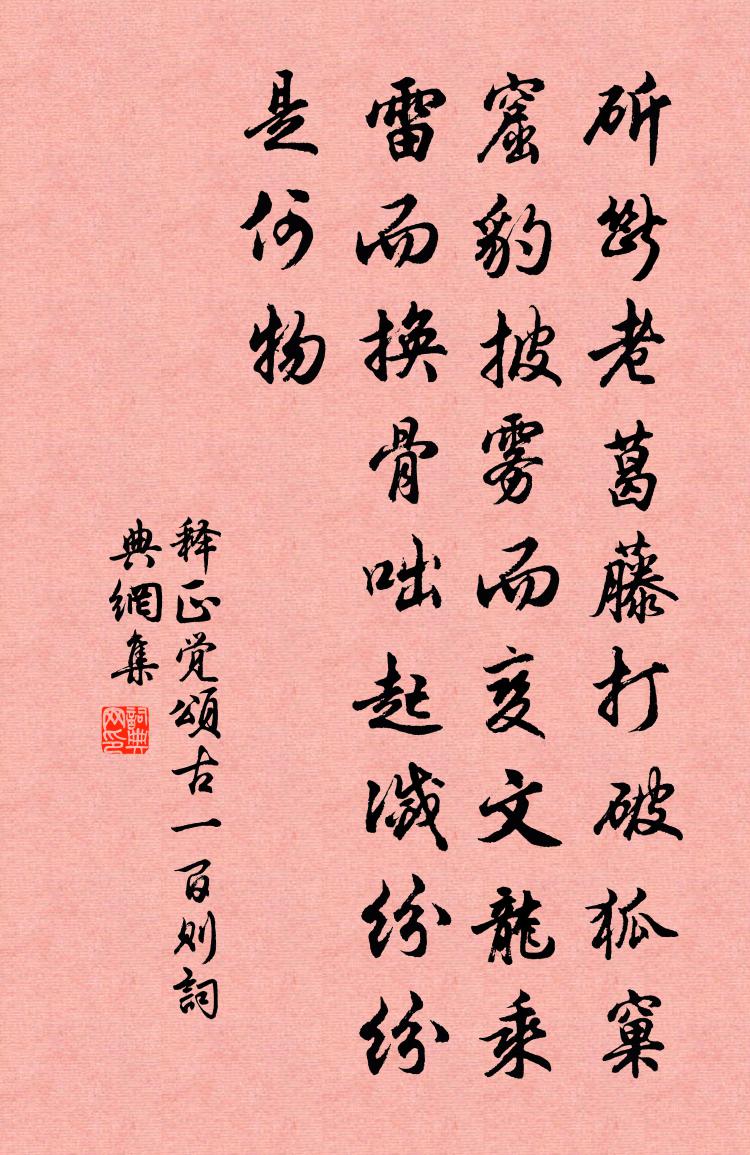 斫斷老葛藤打破狐窠
窟豹披雾而变文龍乘
雷而换骨咄起滅纷纷
是何物
释正觉頌古一百则詞
典網集
詞典网印